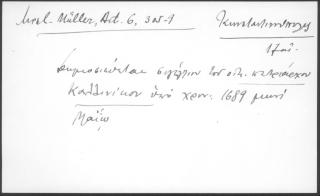 Mikl. - Müller, Act. 6, 302-4
Κωνσταντινούπολις
δημοσιεύεται σιγίλλιον τοῦ οἰκ. πατριάρχου
Καλλινίκου ὑπὸ χρον. 1689 μηνὶ
Μαΐῳ